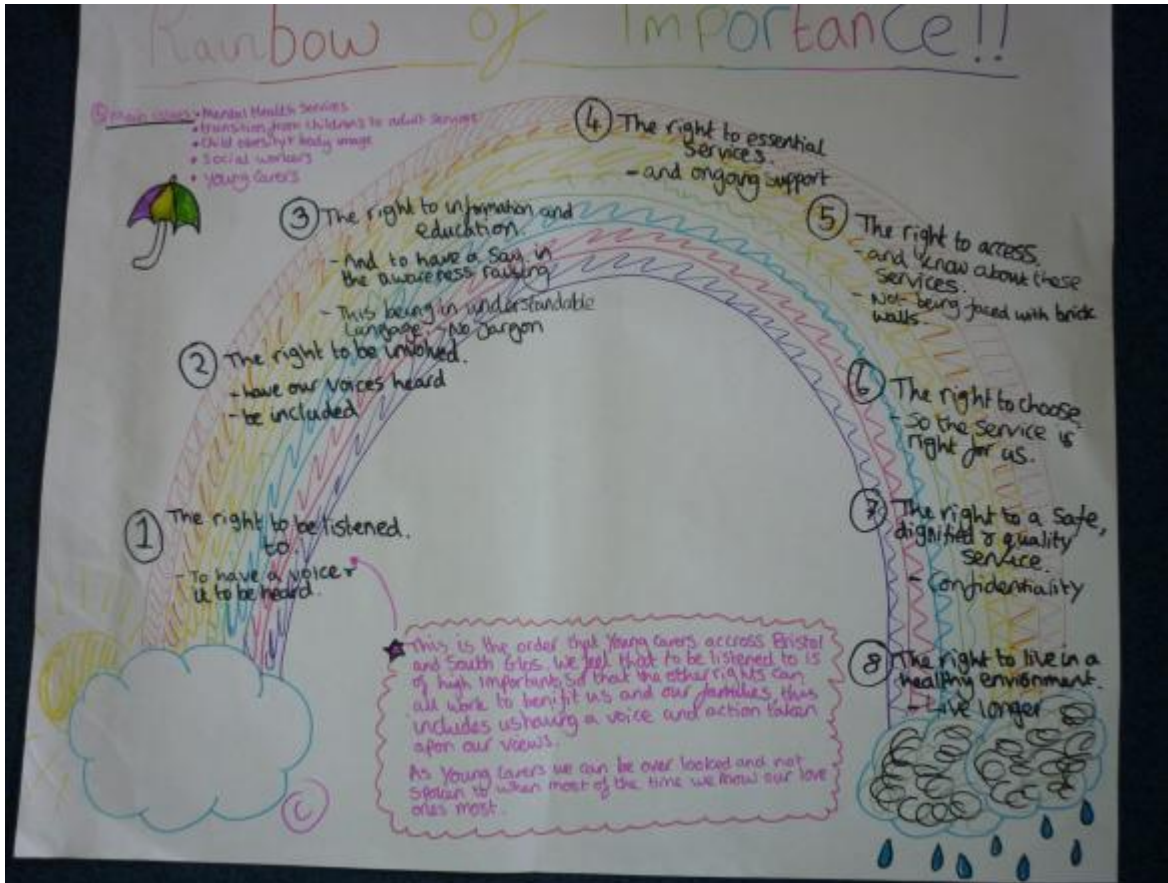 Rainbow of Importance!!
⑤ Main issues • Mental Health Services
• transition from childrens to adult services
• Child obesity + body image
• Social workers
• Young Carers
4 The right to essential
Services.
- and ongoing support
3 The right to information and
education.
- And to have a say in
the awareness raising
- This being in understandable
Langage. - No Jargon
2 The right to be involved.
- have our voices heard
- be included
1 The right to be listened.
to.
- To have a voice +
it to be heard.
5 The right to access.
- and know about these
Services.
- Not being faced with brick
walls.
6 The right to choose,
- So the service is
right for us.
7 The right to a safe,
dignified & quality
service.
- Confidentiality
8 The right to live in a
healthy enviroment.
- Live longer
This is the order that Young Carers accross Bristol
and South Glos. We feel that to be listened to is
of high important, So that the other rights can
all work to benifit us and our families, this
includes us having a voice and action taken
apon our views.
As Young Carers we can be over looked and not
spoken to when most of the time we know our love
ones most.
C